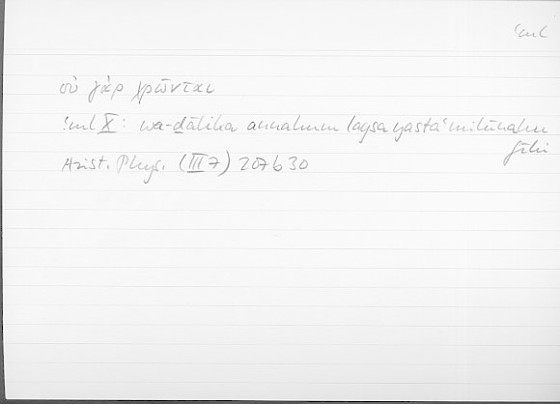 ʿml
οὐ γὰρ χρῶνται
ʿml X: wa-ḏālika annahum laysa yastaʿmilūnahu
fīhi
Arist. Phys. (III 7) 207b30